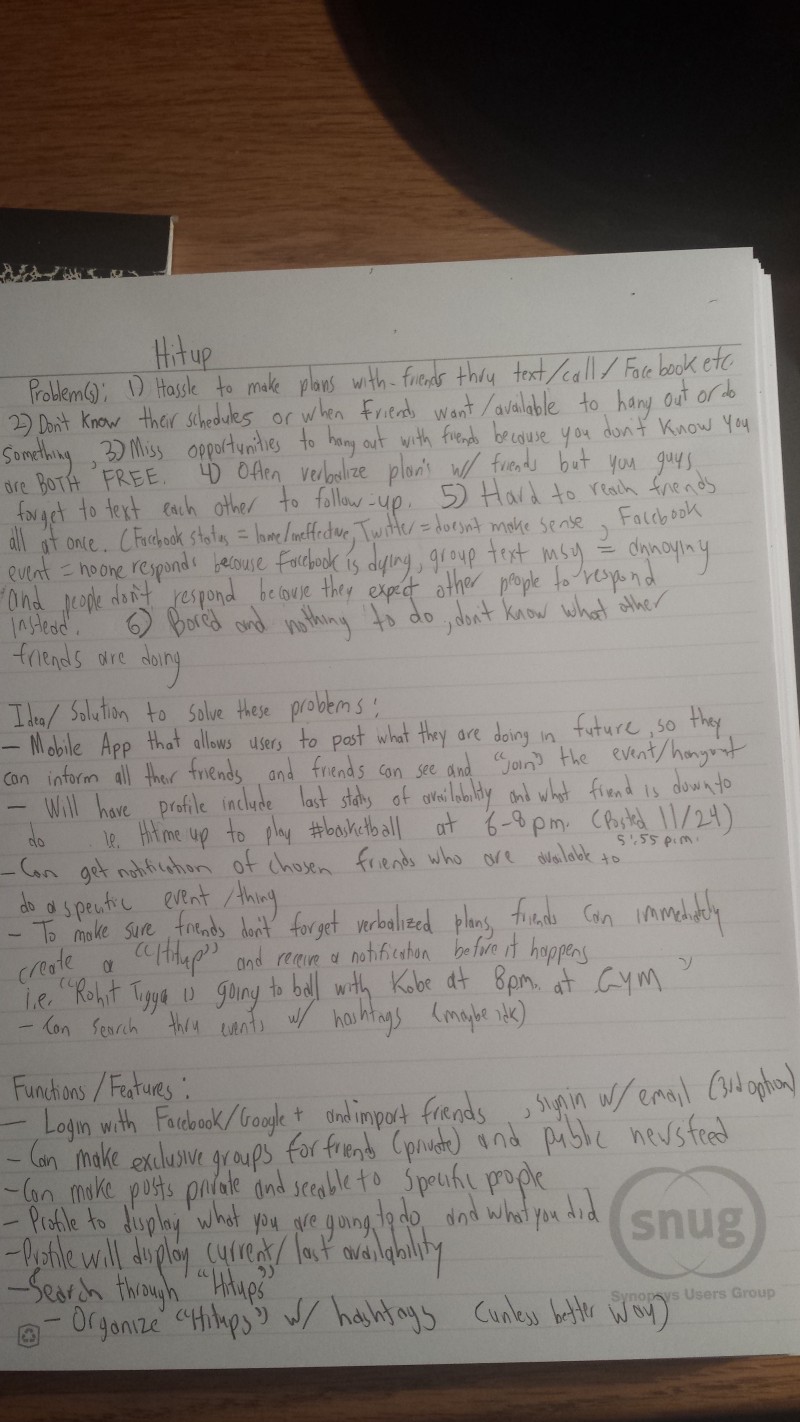 Hitup
Problem(s): 1) Hassle to make plans with friends thru text/call/Facebook etc
2) Don't know their schedules or when friends want/available to hang out or do
something, 3) Miss opportunities to hang out with friends because you don't know you
are BOTH FREE. 4) Often verbalize plans w/ friends but you guys
forget to text each other to follow-up. 5) Hard to reach friends
all at once. (Facebook status = lame/ineffective, Twitter = doesn't make sense, Facebook
event = no one responds because Facebook is dying, group text msg = annoying
and people don't respond because they expect other people to respond
instead. 6) Bored and nothing to do, don't know what other
friends are doing
Idea/Solution to solve these problems:
- Mobile App that allows users to post what they are doing in future, so they
can inform all their friends and friends can see and "join" the event/hangout
- Will have profile include last status of availability and what friend is down to
do ie. Hit me up to play #basketball at 6-8pm. (Posted 11/24)
5:55 p.m.
- Can get notification of chosen friends who are available to
do a specific event/thing
- To make sure friends don't forget verbalized plans, friends can immediately
create a "Hitup" and receive a notification before it happens
i.e. "Rohit Tigga is going to ball with Kobe at 8pm. at Gym"
- Can search thru events w/ hashtags (maybe idk)
Functions/Features:
- Login with Facebook/Google+ and import friends, sign in w/ email (3rd option)
- Can make exclusive groups for friends (private) and public newsfeed
- Can make posts private and seeable to specific people
- Profile to display what you are going to do and what you did
- Profile will display current/last availability
- Search through "Hitups"
- Organize "Hitups" w/ hashtags (unless better way)
snug
Synopsys Users Group